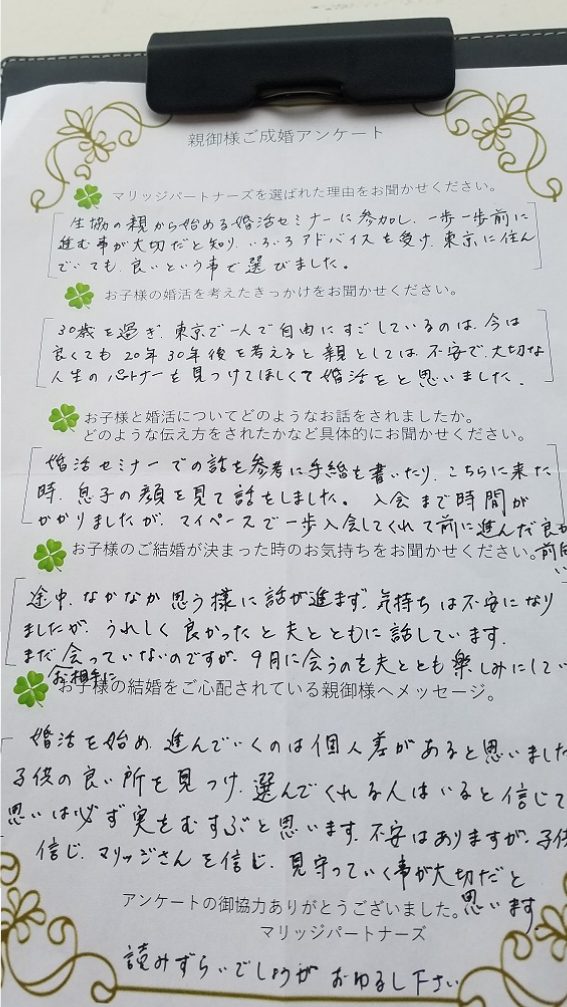 親御様ご成婚アンケート
マリッジパートナーズを選ばれた理由をお聞かせください。
生協の親から始める婚活セミナーに参加し、一歩一歩前に
進む事が大切だと知り、いろいろアドバイスを受け、東京に住ん
でいても、良いという事で選びました。
お子様の婚活を考えたきっかけをお聞かせください。
30歳を過ぎ、東京で一人で自由にすごしているのは、今は
良くても20年30年後を考えると親としては、不安で、大切な
人生のパートナーを見つけてほしくて婚活をと思いました。
お子様と婚活についてどのようなお話をされましたか。
どのような伝え方をされたかなど具体的にお聞かせください。
婚活セミナーでの話を参考に手紙を書いたり、こちらに来た
時、息子の顔を見て話をしました。入会まで時間が
かかりましたが、マイペースで一歩入会してくれて前に進んだ良か
お子様のご結婚が決まった時のお気持ちをお聞かせください。
途中、なかなか思う様に話が進まず、気持ちは不安になり
ましたが、うれしく良かったと夫とともに話しています。
まだ会っていないのですが、9月に会うのを夫とともに楽しみにしてい
お相手に
お子様の結婚をご心配されている親御様へメッセージ。
婚活を始め、進んでいくのは個人差があると思いました
子供の良い所を見つけ、選んでくれる人はいると信じて
思いは必ず実をむすぶと思います。不安はありますが、子供
信じ、マリッジさんを信じ、見守っていく事が大切だと
思います。
アンケートの御協力ありがとうございました。
マリッジパートナーズ
読みずらいでしょうが おゆるし下さい